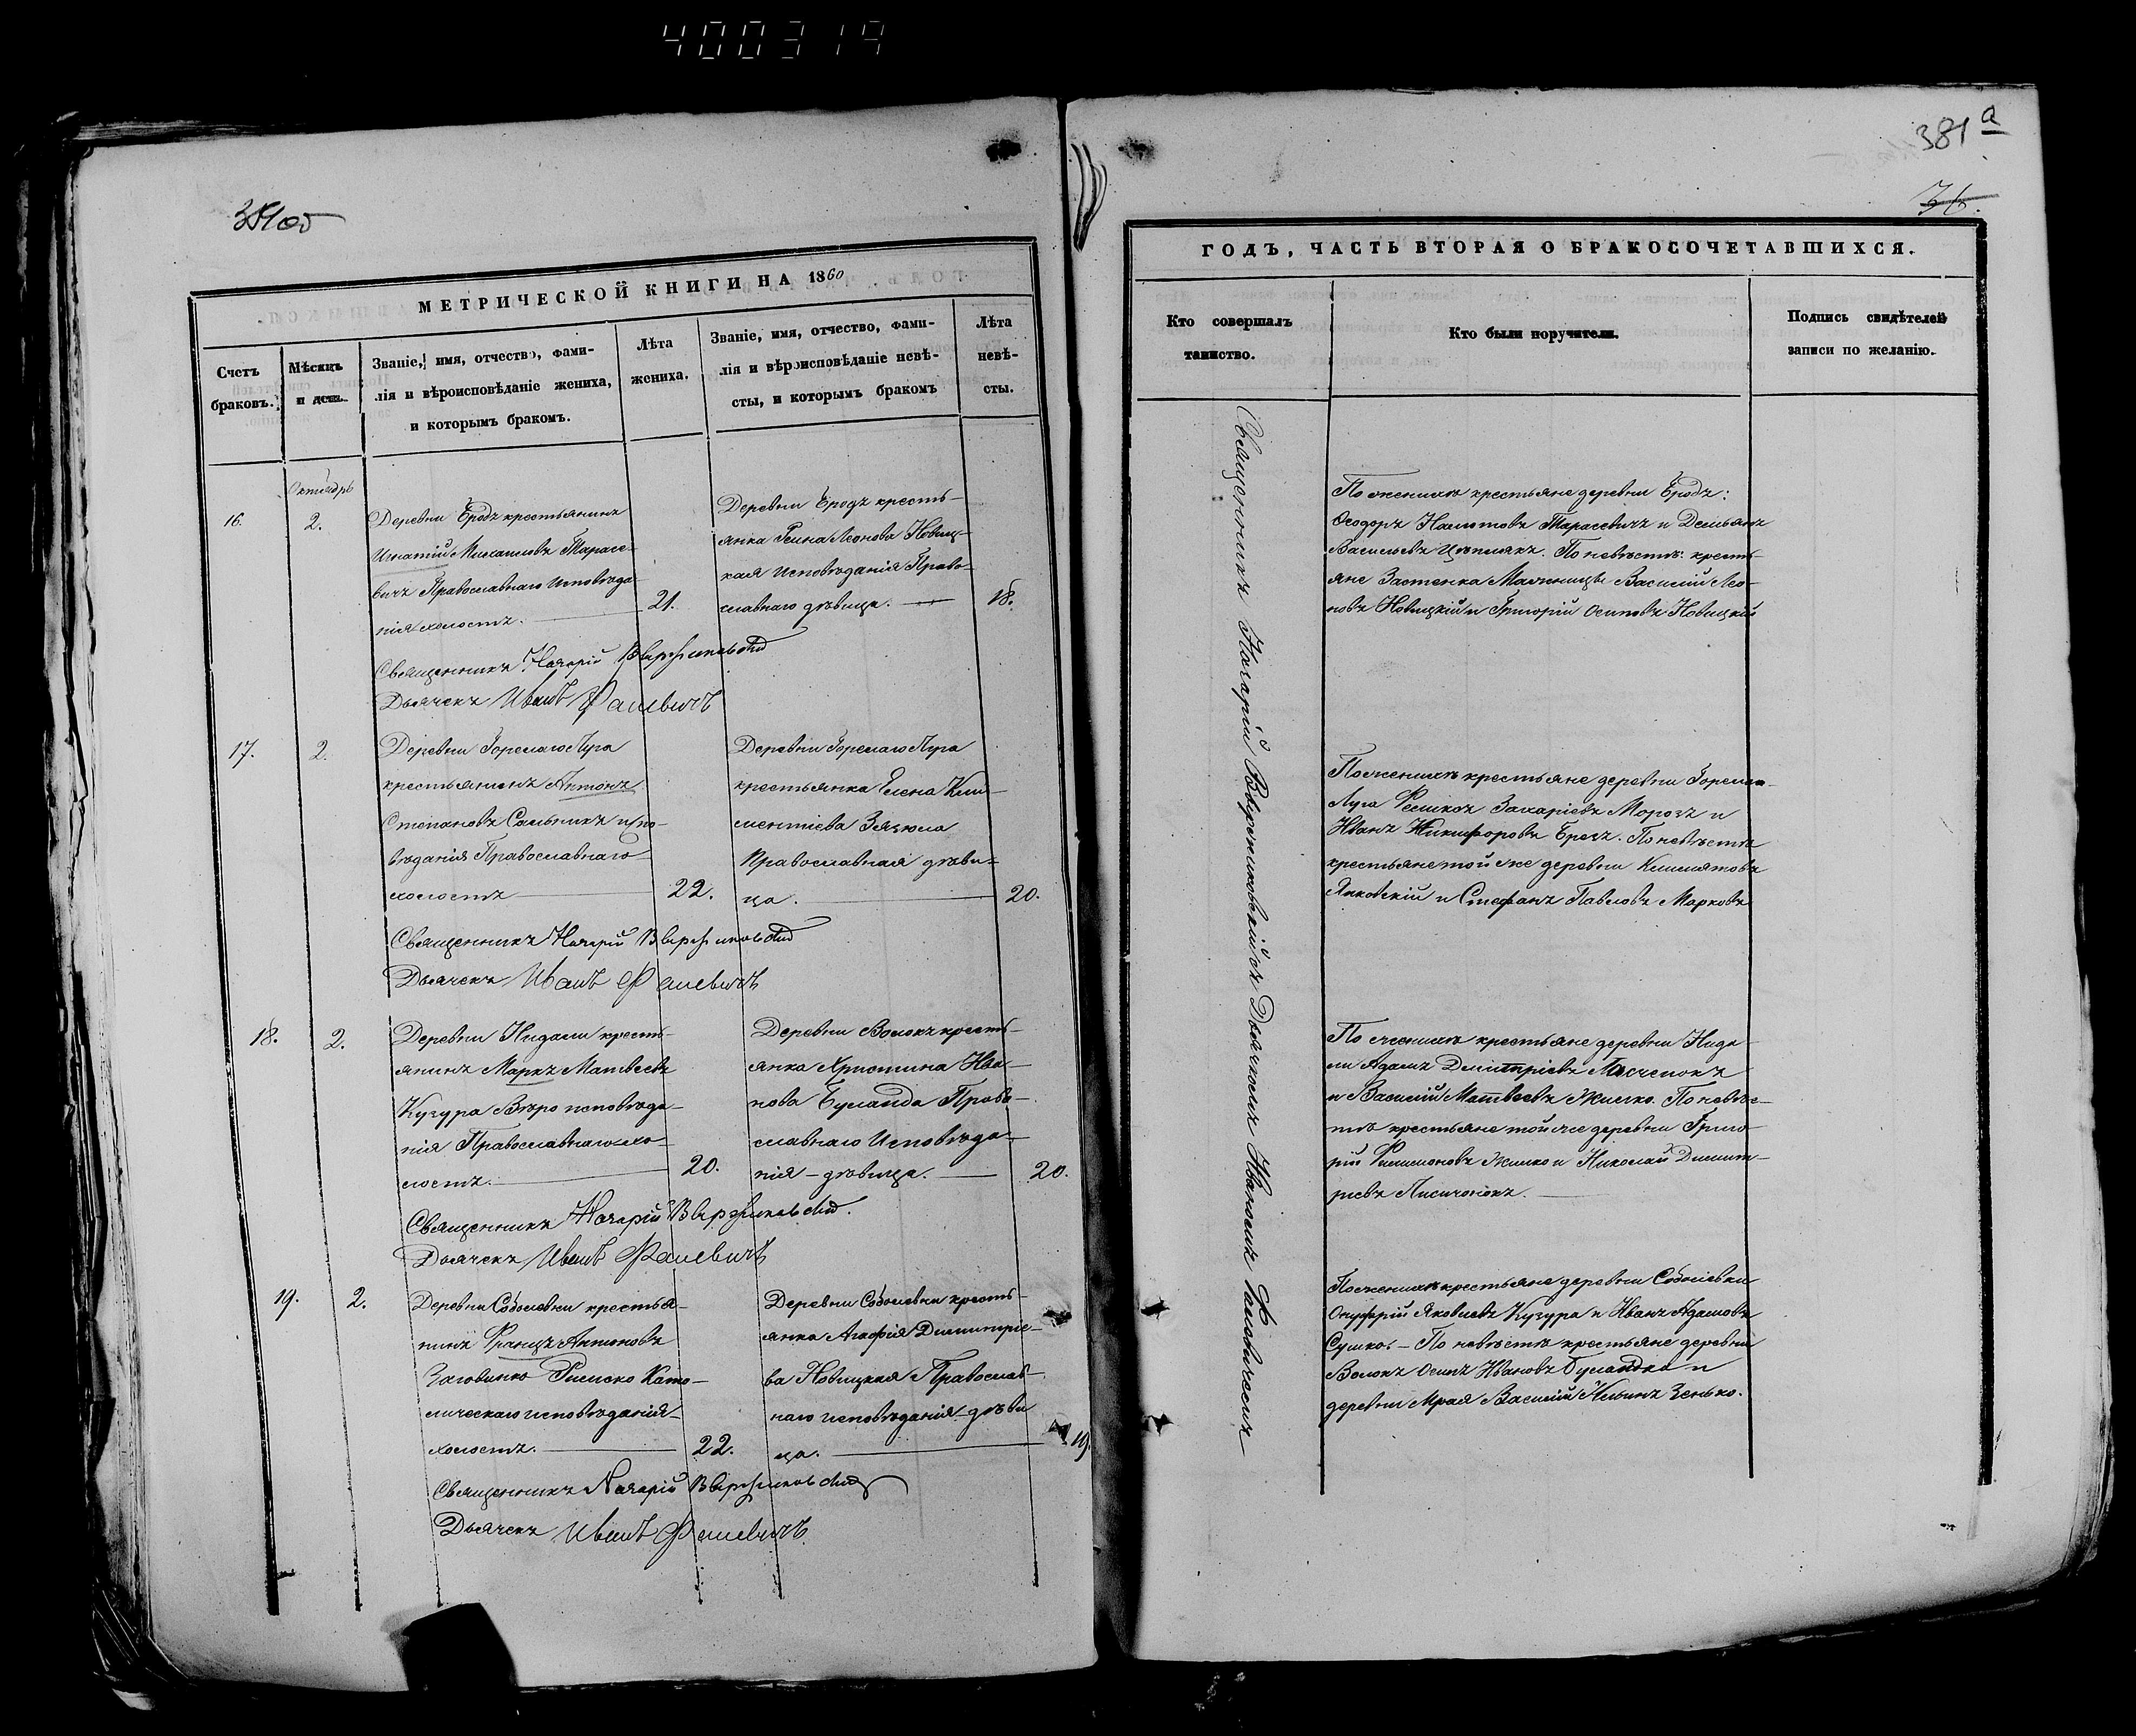 400319
381 а
36.
МЕТРИЧЕСКОЙ КНИГИ НА 1860
Счетъ браковъ.
Мѣсяцъ и день.
Званіе, имя, отчество, фами-
лія и вѣроисповѣданіе жениха,
и которымъ бракомъ.
Лѣта жениха.
Званіе, имя, отчество, фами-
лія и вѣроисповѣданіе невѣ-
сты, и которымъ бракомъ
Лѣта невѣ-
сты.
Октябрь
16.
2.
Деревни Бродъ крестьянинъ
Игнатій Михаиловъ Тарасе-
вичъ Православнаго Исповѣда-
нія холостъ.
21.
Деревни Бродъ кресть-
янка Леонова Новиц-
кая Исповѣданія Право-
славнаго дѣвица.
18.
Священникъ Назарій
Дьячекъ Иванъ
17.
2.
Деревни Горелаго Луга
крестьянинъ Антонъ
Степановъ Сальникъ испо-
вѣданія Православнаго
холостъ
22.
Деревни Горелаго Луга
крестьянка Елена Кли-
ментіева Зязюла
Православная дѣви-
ца.
20.
Священникъ Назарій
Дьячекъ Иванъ
18.
2.
Деревни Нидали кресть-
янинъ Маркъ Матвеевъ
Кугура Вѣроисповѣда-
нія Православнаго хо-
лостъ.
20.
Деревни Волокъ кресть-
янка Христина Ива-
нова Буланда Право-
славнаго Исповѣда-
нія - дѣвица.
20.
Священникъ Назарій
Дьячекъ Иванъ
19.
2.
Деревни Соболевки крестья-
нинъ Францъ Антоновъ
Заговинко Римско Като-
лическаго исповѣданія
холостъ.
22.
Деревни Соболевки кресть-
янка Агафія Димитріе-
ва Новицкая Православ-
наго исповѣданія дѣви
ца.
19.
Священникъ Назарій
Дьячекъ Иванъ
ГОДЪ, ЧАСТЬ ВТОРАЯ О БРАКОСОЧЕТАВШИХСЯ.
Кто совершалъ
таинство.
Кто были поручители.
Подпись свидѣтелей
записи по желанію.
Священникъ Назарій съ Дьячкомъ Иваномъ
По женихѣ крестьяне деревни Бродъ:
Ѳеодоръ Тарасевичъ и Демьянъ
Васильевъ. По невѣстѣ: кресть-
яне Застенка Василий Лео-
новъ Новицкій и Григорій Осиповъ Новицкій
По женихѣ крестьяне деревни Горелаго
Луга Захаріевъ Морозъ и
Иванъ Никифоровъ. По невѣстѣ
крестьяне той же деревни
Янковскій и Стефанъ Павловъ Марковъ
По женихѣ крестьяне деревни Нида-
ли Адамъ Димитріевъ
и Василій Матвеевъ Жилко. По невѣс-
тѣ крестьяне той же деревни Григо-
рій Филимоновъ Жилко и Николай Димит-
ріевъ Лисичонокъ.
По женихѣ крестьяне деревни Соболевки
Онуфрій Яковлевъ Кугура и Иванъ Адамовъ
Сушко. - По невѣстѣ крестьяне деревни
Волокъ Осипъ Ивановъ Буланда и
деревни Мрая Василій Ильинъ Зенько.